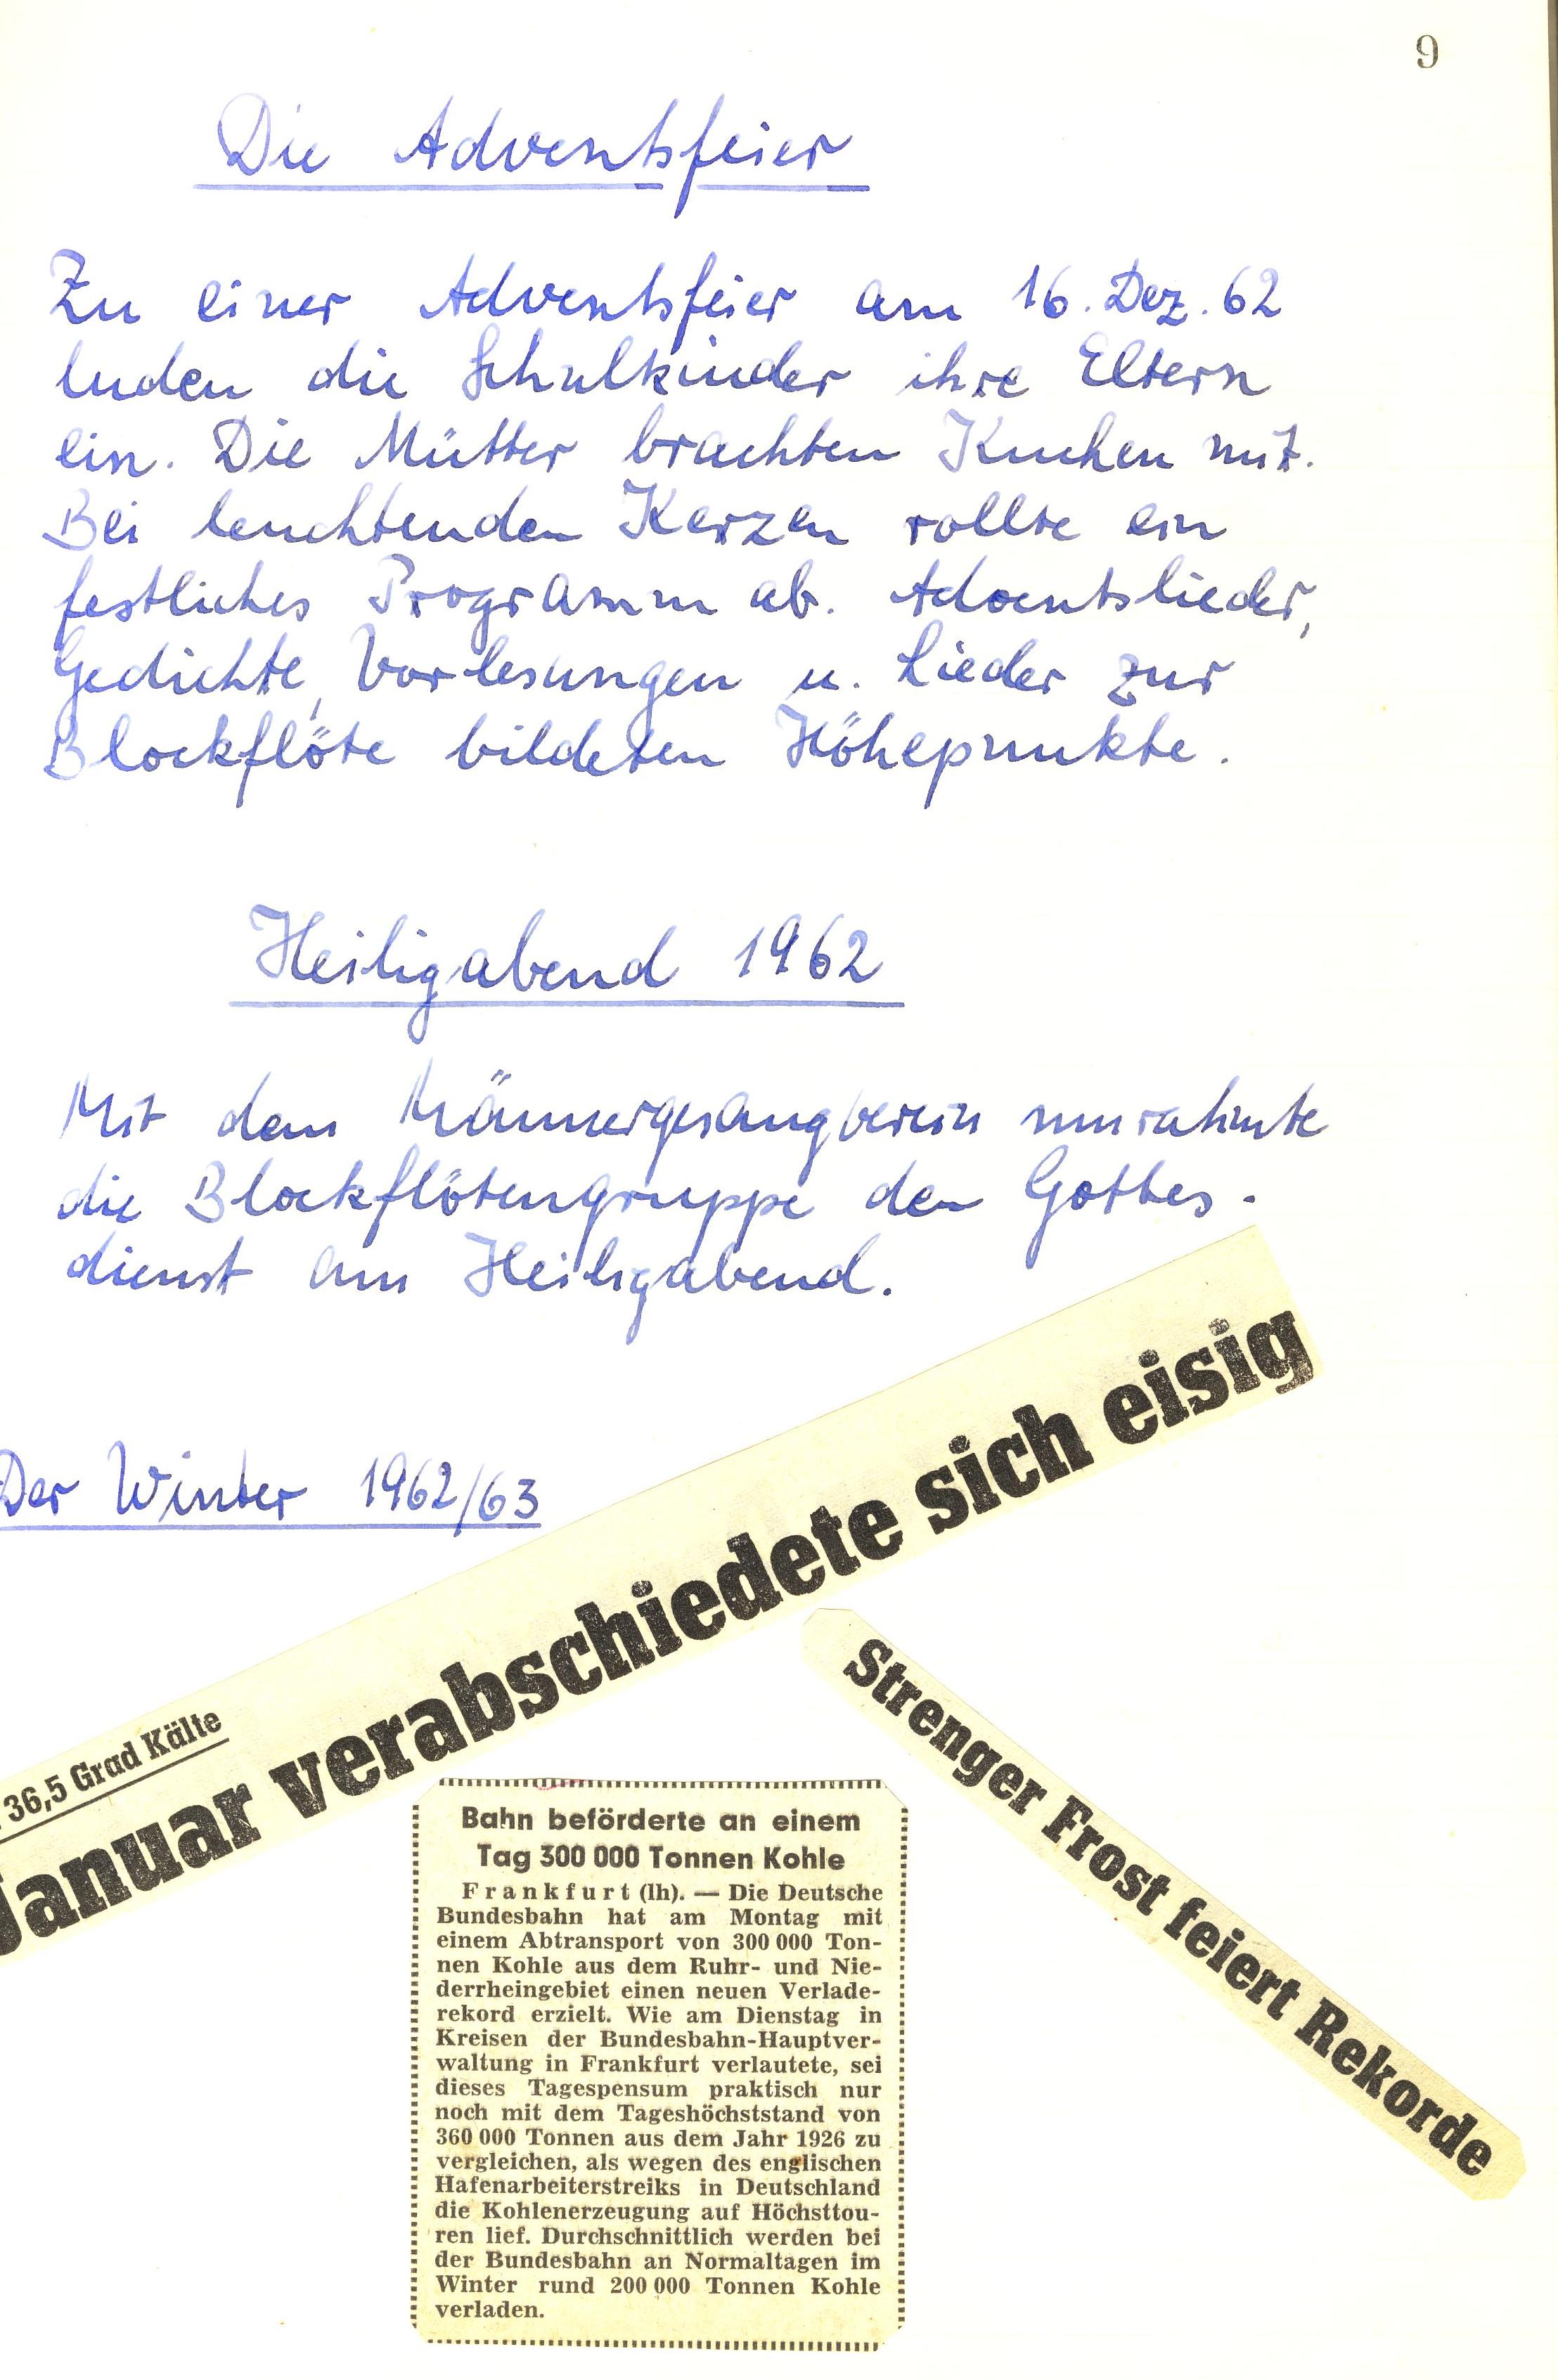 9
Die Adventsfeier
Zu einer Adventsfeier am 16. Dez. 62
luden die Schulkinder ihre Eltern
ein. Die Mütter brachten Kuchen mit.
Bei leuchtenden Kerzen rollte ein
festliches Programm ab. Adventslieder,
Gedichte, Vorlesungen u. Lieder zur
Blockflöte bildeten Höhepunkte.
Heiligabend 1962
Mit dem Männergesangverein umrahmte
die Blockflötengruppe den Gottes-
dienst am Heiligabend.
Der Winter 1962/63
36,5 Grad Kälte
Januar verabschiedete sich eisig
Strenger Frost feiert Rekorde
Bahn beförderte an einem
Tag 300 000 Tonnen Kohle
Frankfurt (lh). — Die Deutsche
Bundesbahn hat am Montag mit
einem Abtransport von 300 000 Ton-
nen Kohle aus dem Ruhr- und Nie-
derrheingebiet einen neuen Verlade-
rekord erzielt. Wie am Dienstag in
Kreisen der Bundesbahn-Hauptver-
waltung in Frankfurt verlautete, sei
dieses Tagespensum praktisch nur
noch mit dem Tageshöchststand von
360 000 Tonnen aus dem Jahr 1926 zu
vergleichen, als wegen des englischen
Hafenarbeiterstreiks in Deutschland
die Kohlenerzeugung auf Höchsttou-
ren lief. Durchschnittlich werden bei
der Bundesbahn an Normaltagen im
Winter rund 200 000 Tonnen Kohle
verladen.